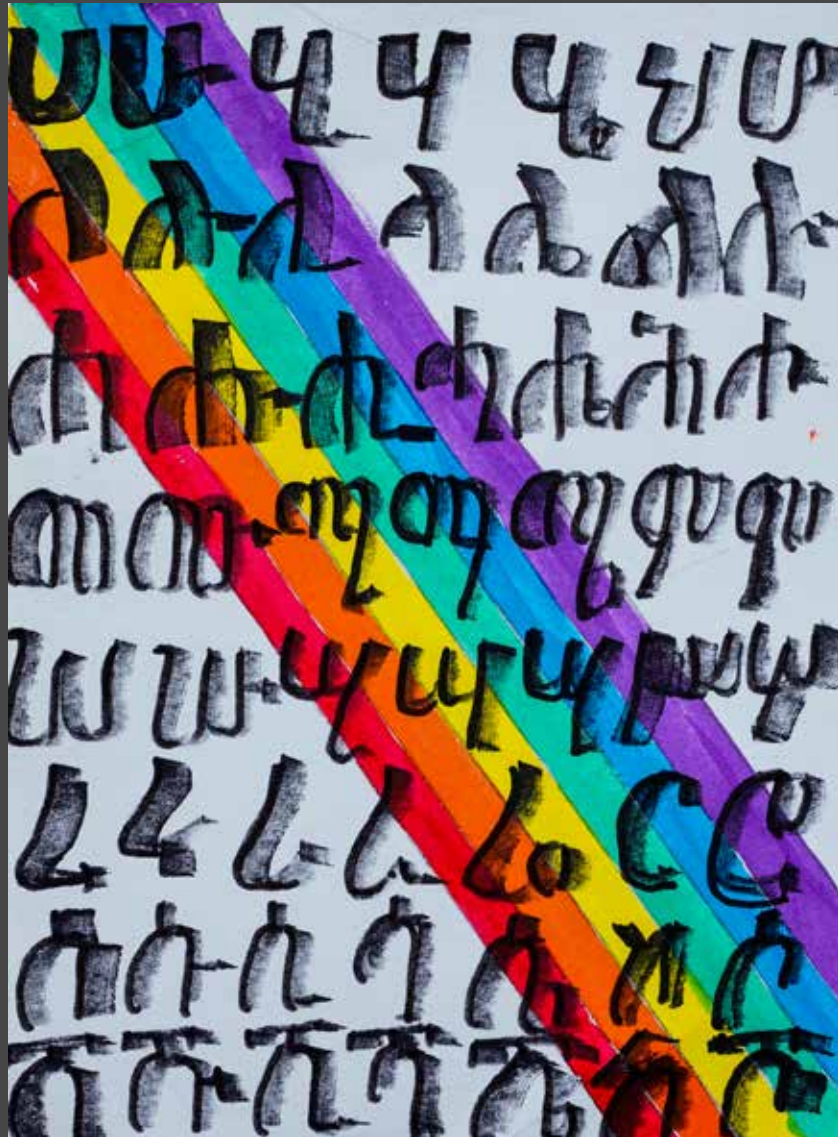 ሀ ሁ ሂ ሃ ሄ ህ ሆ
ለ ሉ ሊ ላ ሌ ል ሎ
ሐ ሑ ሒ ሓ ሔ ሕ ሖ
መ ሙ ሚ ማ ሜ ም ሞ
ሠ ሡ ሢ ሣ ሤ ሥ ሦ
ረ ሩ ሪ ራ ሬ ር ሮ
ሰ ሱ ሲ ሳ ሴ ስ ሶ
ሸ ሹ ሺ ሻ ሼ ሽ ሾ